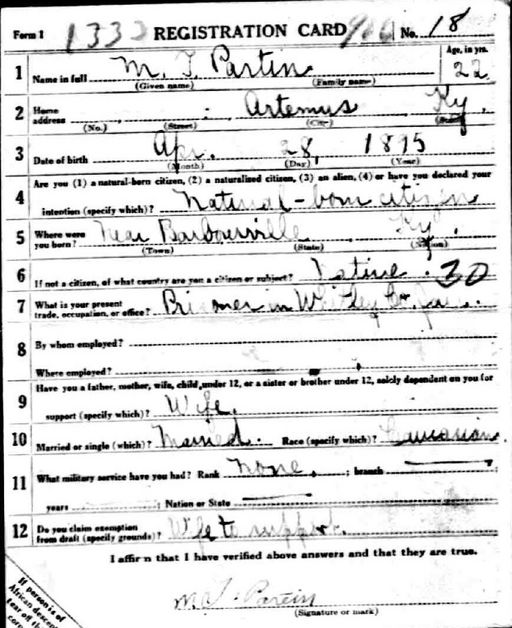 Form 1 1333 REGISTRATION CARD No. 18
Age, in yrs.
1 Name in full M. T. Partin 22
(Given name) (Family name)
2 Home address Artemus Ky.
(No.) (Street) (City) (State)
3 Date of birth Apr. 28, 1895
(Month) (Day) (Year)
Are you (1) a natural-born citizen, (2) a naturalized citizen, (3) an alien, (4) or have you declared your
4 intention (specify which)? Natural-born citizen
5 Where were you born? Near Barbourville Ky.
(Town) (State) (Nation)
6 If not a citizen, of what country are you a citizen or subject? Native. 30
7 What is your present trade, occupation, or office? Prisoner in Whitley Co. Jail.
8 By whom employed?
Where employed?
Have you a father, mother, wife, child under 12, or a sister or brother under 12, solely dependent on you for
9 support (specify which)? Wife.
10 Married or single (which)? Married. Race (specify which)? Caucasian.
11 What military service have you had? Rank none, ; branch
years ; Nation or State
12 Do you claim exemption from draft (specify grounds)? Wife to support.
I affirm that I have verified above answers and that they are true.
M. T. Partin
(Signature or mark)
If person is of
African descent,
tear off this